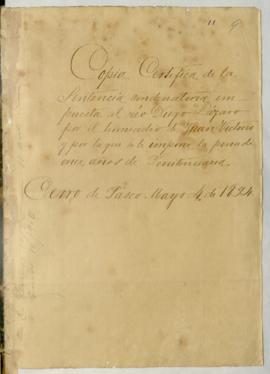 11
Copia Certifica de la
Sentencia condenatoria im
puesta al réo Diego Lázaro
por el homicidio de Juan Victorio
y por la que se le impone la pena de
once años de Penitenciaria.
Cerro de Pasco. Mayo 4 de 1824